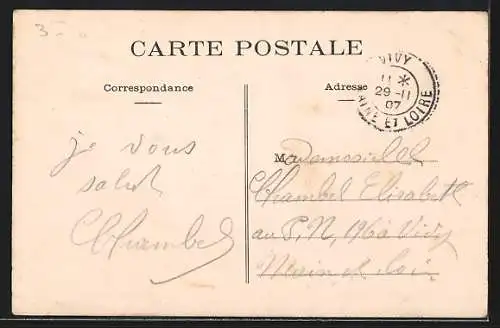 3-
CARTE POSTALE
Correspondance
Adresse
VIVY
11 *
29-11
07
MAINE ET LOIRE
je vous
salut
Chambel
Mademoiselle
Chambel Elisabeth
au P.N, 196 à Vivy
Main et Loir